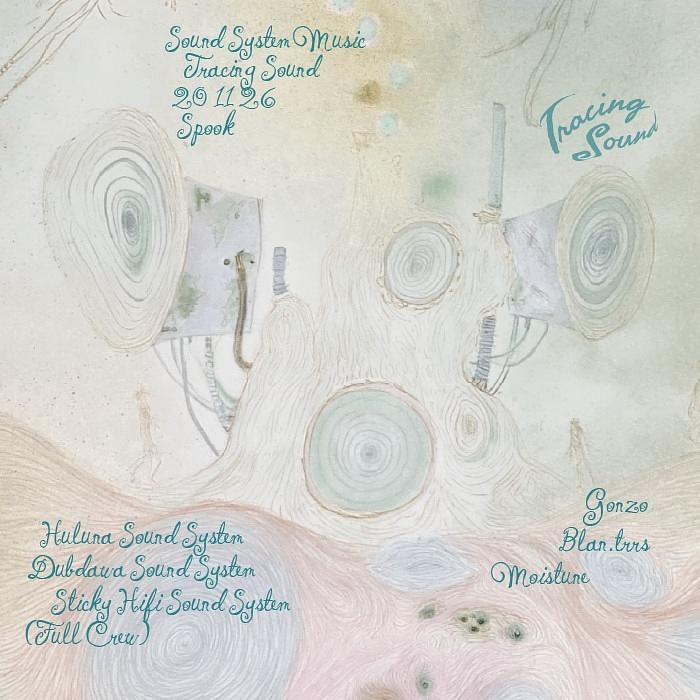 Sound System Music
Tracing Sound
20 11 26
Spook
Tracing
Sound
Huluna Sound System
Dubdawa Sound System
Sticky Hifi Sound System
(Full Crew)
Gonzo
Blan.trrs
Moisture